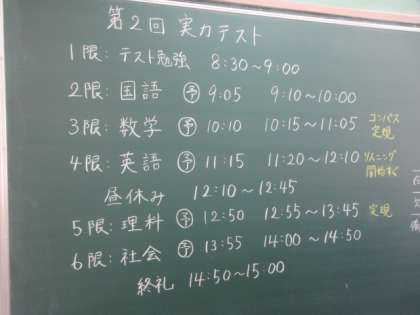 第2回 実力テスト
1限：テスト勉強 8:30～9:00
2限：国語 予 9:05 9:10～10:00
3限：数学 予 10:10 10:15～11:05 コンパス 定規
4限：英語 予 11:15 11:20～12:10 リスニング 開始すぐ
昼休み 12:10～12:45
5限：理科 予 12:50 12:55～13:45 定規
6限：社会 予 13:55 14:00～14:50
終礼 14:50～15:00